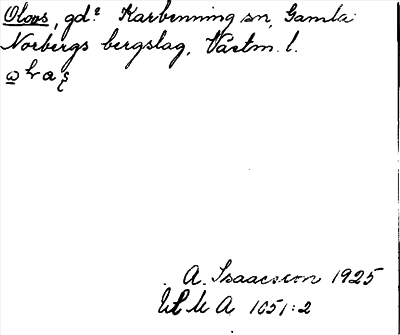 Olovs, gde Karbenning sn, Gamla
Norbergs bergslag, Västm. l.
A. Isaacsson 1925
ULMA 1051:2